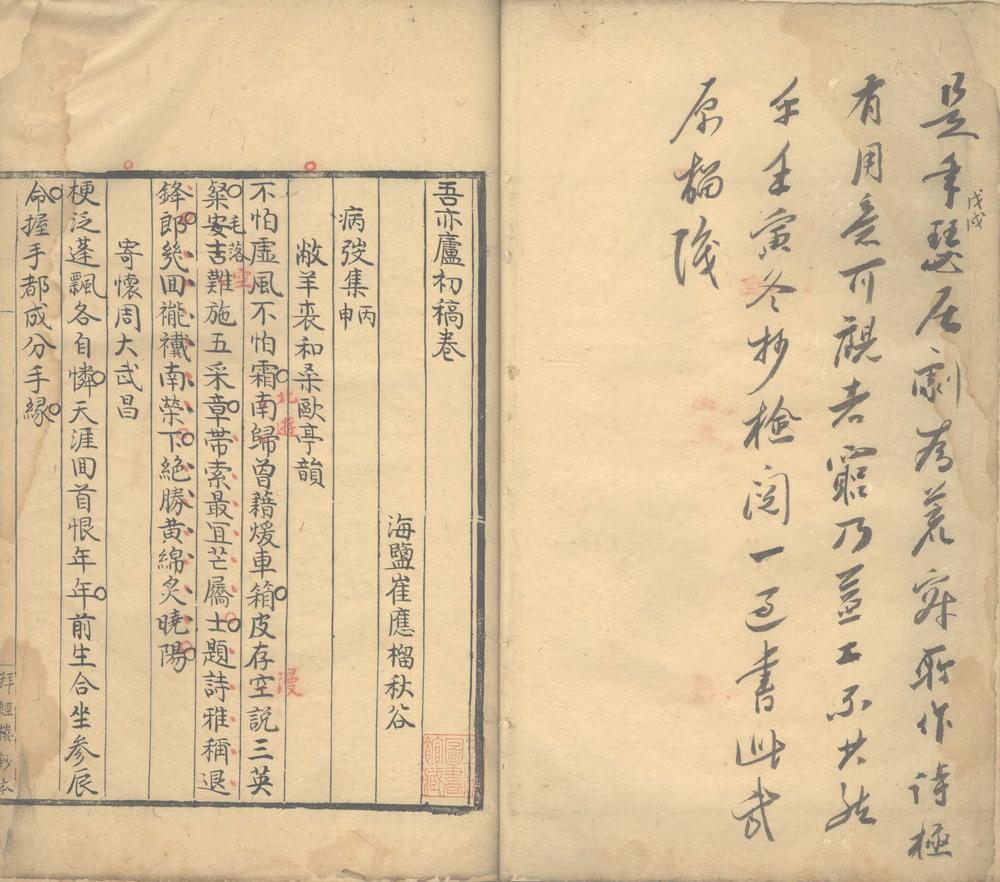 是年瑟居劇為荒寂所作詩極
戊戌
有用意可觀者窮乃益工不其然
乎壬寅冬抄檢閱一過書此武
原榴
吾亦廬初稿卷
海鹽崔應榴秋谷
病弢集丙申
敝羊裘和桑歐亭韻
不怕虛風不怕霜南歸曾藉煖車箱皮存空說三英
北遊
漫
粲安吉難施五采章帶索最宜芒屩士題詩雅稱退
毛落
空
鋒郎幾回褦襶南榮下絶勝黃綿炙曉陽
寄懷周大武昌
梗泛蓬飄各自憐天涯回首恨年年前生合坐參辰
命握手都成分手緣
拜經樓鈔本